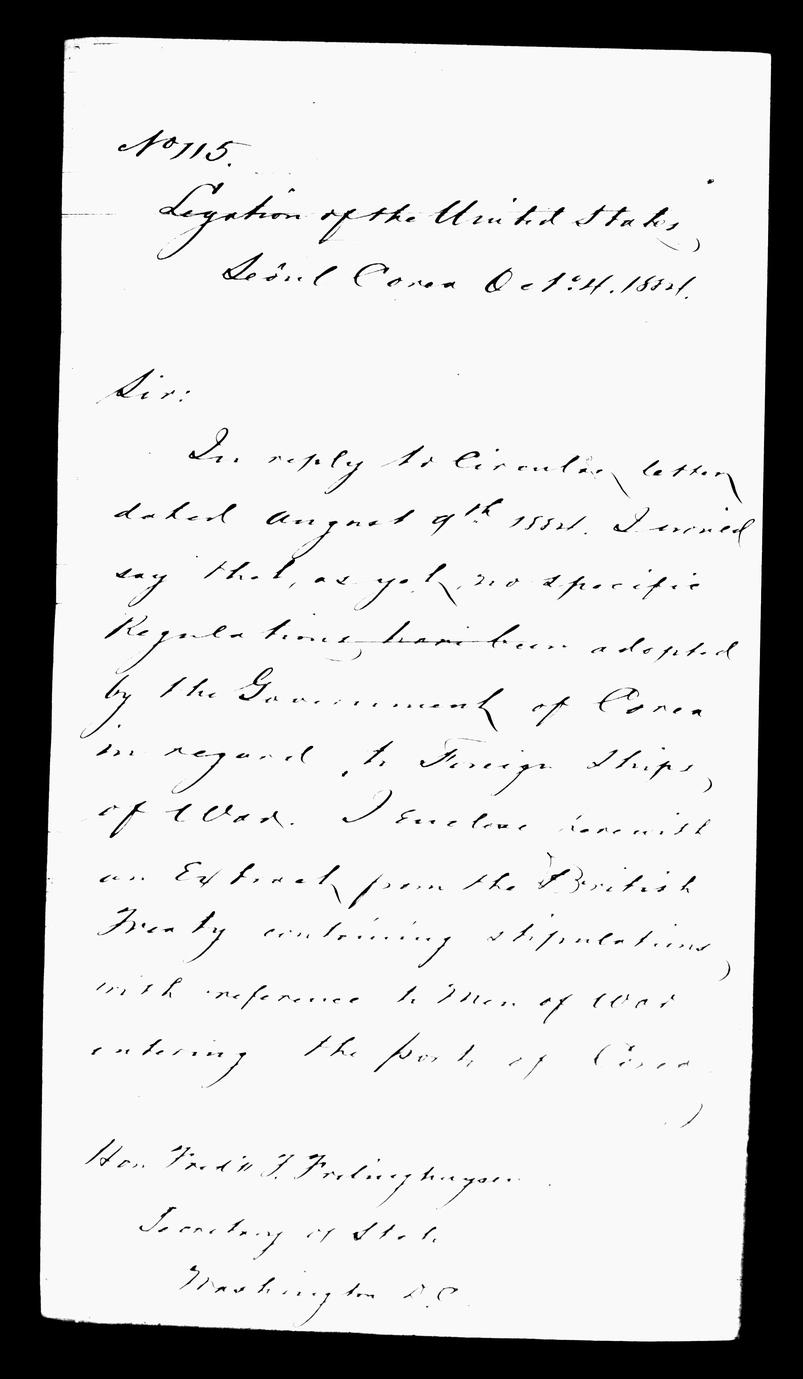 No 115.
Legation of the United States,
Seoul Corea Oct. 4. 1884.
Sir:
In reply to Circular letter
dated August 9th 1884. I would
say that, as yet, no specific
Regulations, have been adopted
by the Government of Corea
in regard to Foreign Ships,
of War. I enclose herewith
an Extract from the British
Treaty containing stipulations,
with reference to Men of War
entering the ports of Corea
Hon Fred'k T. Frelinghuysen.
Secretary of State
Washington D.C.